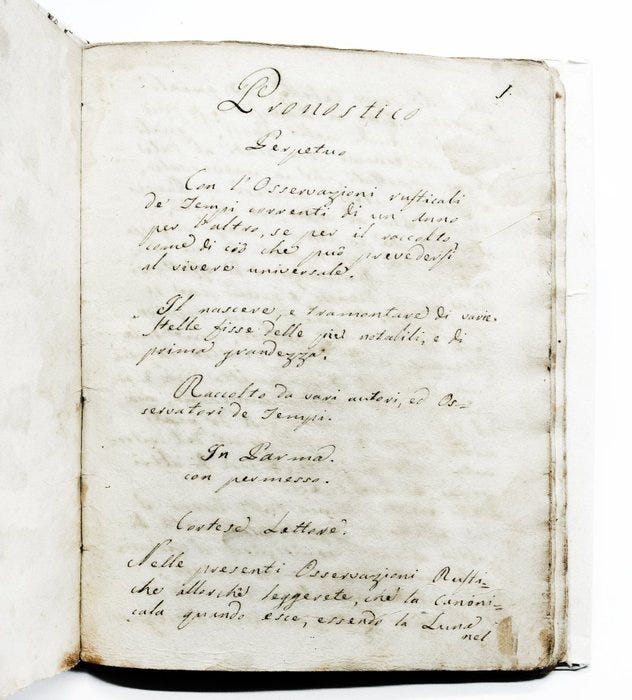 1.
Pronostico
Perpetuo
Con l'Osservazioni rusticali
de' Tempi correnti di un anno
per l'altro, se per il raccolto,
come di ciò che può prevedersi
al vivere universale.
Il nascere, e tramontare di varie
Stelle fisse delle più notabili, e di
prima grandezza.
Raccolto da vari autori, ed Os=
servatori de Tempi.
In Parma.
con permesso.
Cortese Lettore.
Nelle presenti Osservazioni Rusti=
che allorchè leggerete, che la Canoni=
cala quando esce, essendo la Luna
nel